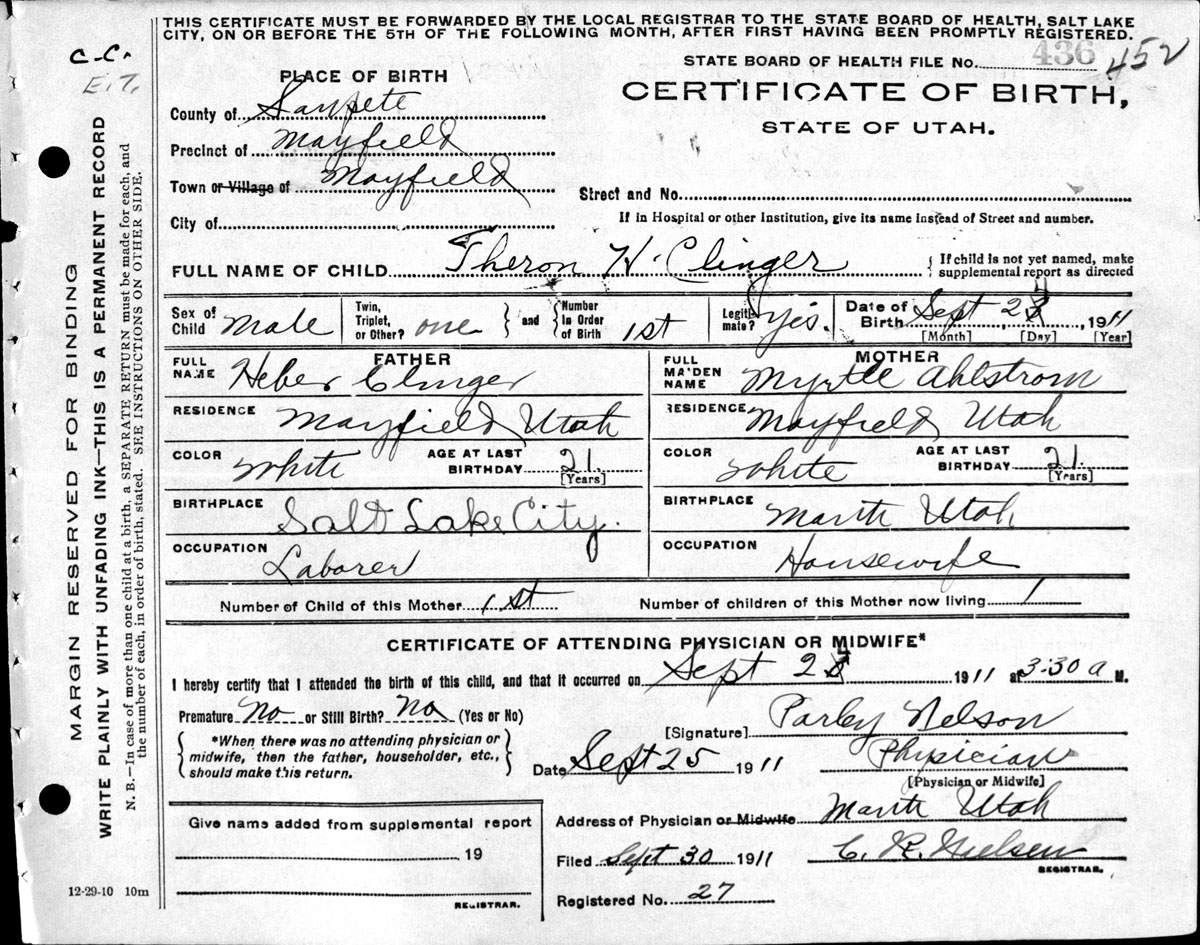 THIS CERTIFICATE MUST BE FORWARDED BY THE LOCAL REGISTRAR TO THE STATE BOARD OF HEALTH, SALT LAKE
CITY, ON OR BEFORE THE 5TH OF THE FOLLOWING MONTH, AFTER FIRST HAVING BEEN PROMPTLY REGISTERED.
C.C.
E.T.
STATE BOARD OF HEALTH FILE No. 436 452
PLACE OF BIRTH
CERTIFICATE OF BIRTH,
STATE OF UTAH.
County of Sanpete
Precinct of Mayfield
Town or Village of Mayfield
Street and No.
City of
If in Hospital or other Institution, give its name instead of Street and number.
FULL NAME OF CHILD Theron H. Clinger
{ If child is not yet named, make
supplemental report as directed
Sex of Child Male
Twin, Triplet, or Other? one } and { Number in Order of Birth 1st
Legitimate? yes.
Date of Birth Sept 2 , 1911
[Month] [Day] [Year]
FATHER
FULL NAME Heber Clinger
RESIDENCE Mayfield, Utah
COLOR White
AGE AT LAST BIRTHDAY 21. [Years]
BIRTHPLACE Salt Lake City.
OCCUPATION Laborer
MOTHER
FULL MAIDEN NAME Myrtle Ahlstrom
RESIDENCE Mayfield, Utah
COLOR White
AGE AT LAST BIRTHDAY 21. [Years]
BIRTHPLACE Manti Utah
OCCUPATION Housewife
Number of Child of this Mother 1st
Number of children of this Mother now living 1
CERTIFICATE OF ATTENDING PHYSICIAN OR MIDWIFE*
I hereby certify that I attended the birth of this child, and that it occurred on Sept 2 1911 at 3-30 a M.
Premature No or Still Birth? No (Yes or No)
{ *When there was no attending physician or
midwife, then the father, householder, etc.,
should make this return. }
[Signature] Parley Nelson
Physician
[Physician or Midwife]
Date Sept 25 1911
Address of Physician or Midwife Manti Utah
Filed Sept 30 1911 C. R. Nielsen
REGISTRAR.
Registered No. 27
Give name added from supplemental report
19
REGISTRAR.
12-29-10 10m
MARGIN RESERVED FOR BINDING
WRITE PLAINLY WITH UNFADING INK—THIS IS A PERMANENT RECORD
N. B.—In case of more than one child at a birth, a SEPARATE RETURN must be made for each, and
the number of each, in order of birth, stated. SEE INSTRUCTIONS ON OTHER SIDE.